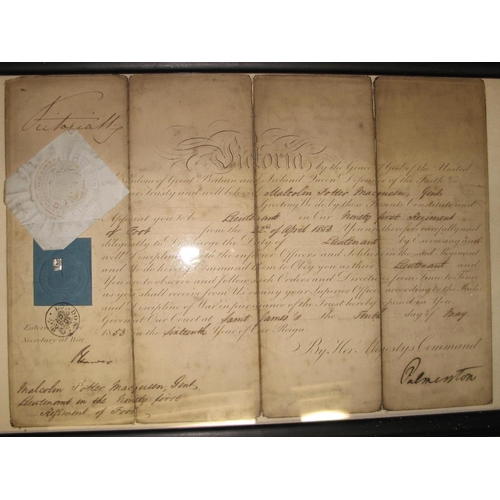 Victoria R
Victoria by the Grace of God of the United
Kingdom of Great Britain and Ireland Queen Defender of the Faith &c
To Our Trusty and well beloved Malcolm Potter Macqueen, Gent.
Greeting We do by these Presents Constitute and
Appoint you to be Lieutenant in Our Ninety first Regiment
of Foot from the 22nd of April 1853 You are therefore carefully and
diligently to Discharge the Duty of Lieutenant by Exercising and
well disciplining both the inferior Officers and Soldiers in that Regiment
and We do hereby Command them to Obey you as their Lieutenant
and you to observe and follow such Orders and Directions from time to time
as you shall receive from any your Superior Officer according to the Rules
and Discipline of War in pursuance of the Trust hereby reposed in You
Given at Our Court at Saint James's the Tenth day of May
1853 in the Sixteenth Year of Our Reign
By Her Majesty's Command
Palmerston
Entered
Secretary at War
Malcolm Potter Macqueen, Gent.
Lieutenant in the Ninety first
Regiment of Foot